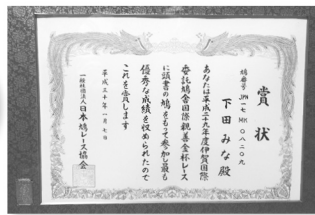 賞状
鳩番号 JPN一七 MK 〇八二〇九
下田みな殿
あなたは平成二十九年度伊賀国際
委託鳩舎国際親善金杯レース
に頭書の鳩をもって参加し最も
優秀な成績を収められたので
これを賞します
平成三十年一月七日
一般社団法人日本鳩レース協会